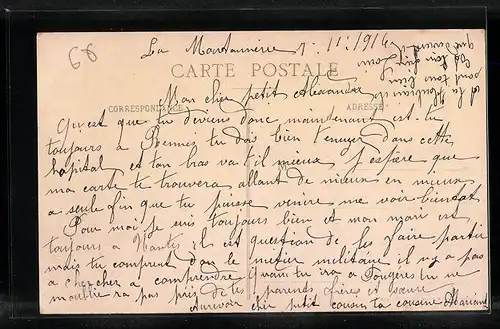 68
La Martinière 1.11.1916
CARTE POSTALE
Mon cher petit Alexandre
CORRESPONDANCE ADRESSE
Qu'est que tu deviens donc maintenant est-tu
toujours à Rennes tu dois bien t'enuyer dans cette
hôpital et ton bras va t'il mieux j'espère que
ma carte te trouvera allant de mieux en mieux
a seule fin que tu puisse venire me voir bientot
Pour moi je suis toujours bien et mon mari est
toujours a Nantes il est question de les faire partir
mais tu comprent dans le metier militaire il n'y a pas
a chercher a comprendre Quant tu ira a Fougères tu ne
m'oublira pas près de tes parends frères et sœurs
Aurevoir cher petit cousin ta cousine Mariane